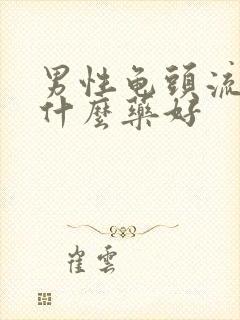 男性龟頭流
什麼藥好
崔雲